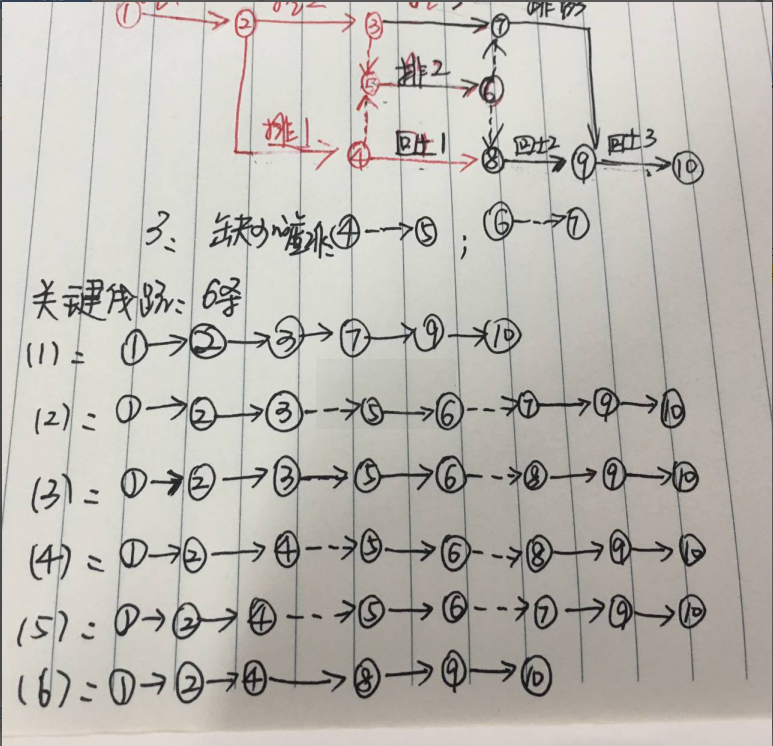 ① ② ③ ⑦
排2
⑤ ⑥
排1 回土1 回土2 回土3
④ ⑧ ⑨ ⑩
3: 缺少 ④⇢⑤ ; ⑥⇢⑦
关键线路: 6条
(1)= ①→②→③→⑦→⑨→⑩
(2)= ①→②→③⇢⑤→⑥⇢⑦→⑨→⑩
(3)= ①→②→③→⑤→⑥⇢⑧→⑨→⑩
(4)= ①→②→④⇢⑤→⑥⇢⑧→⑨→⑩
(5)= ①→②→④⇢⑤→⑥⇢⑦→⑨→⑩
(6)= ①→②→④→⑧→⑨→⑩